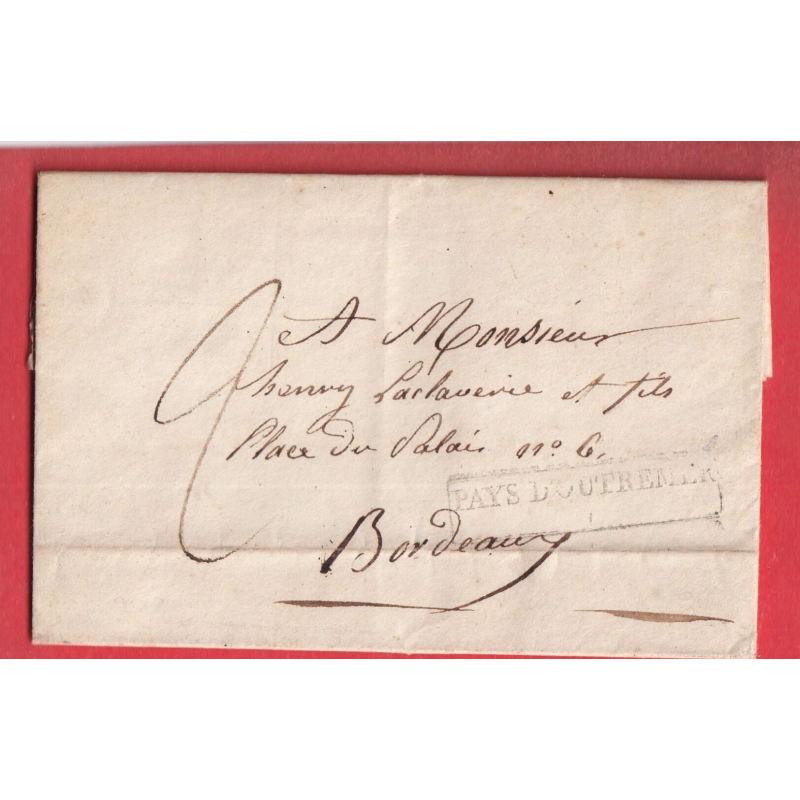 A Monsieur
henry Laclaverie et fils
Place du Palais no. 6.
PAYS D'OUTREMER
Bordeaux